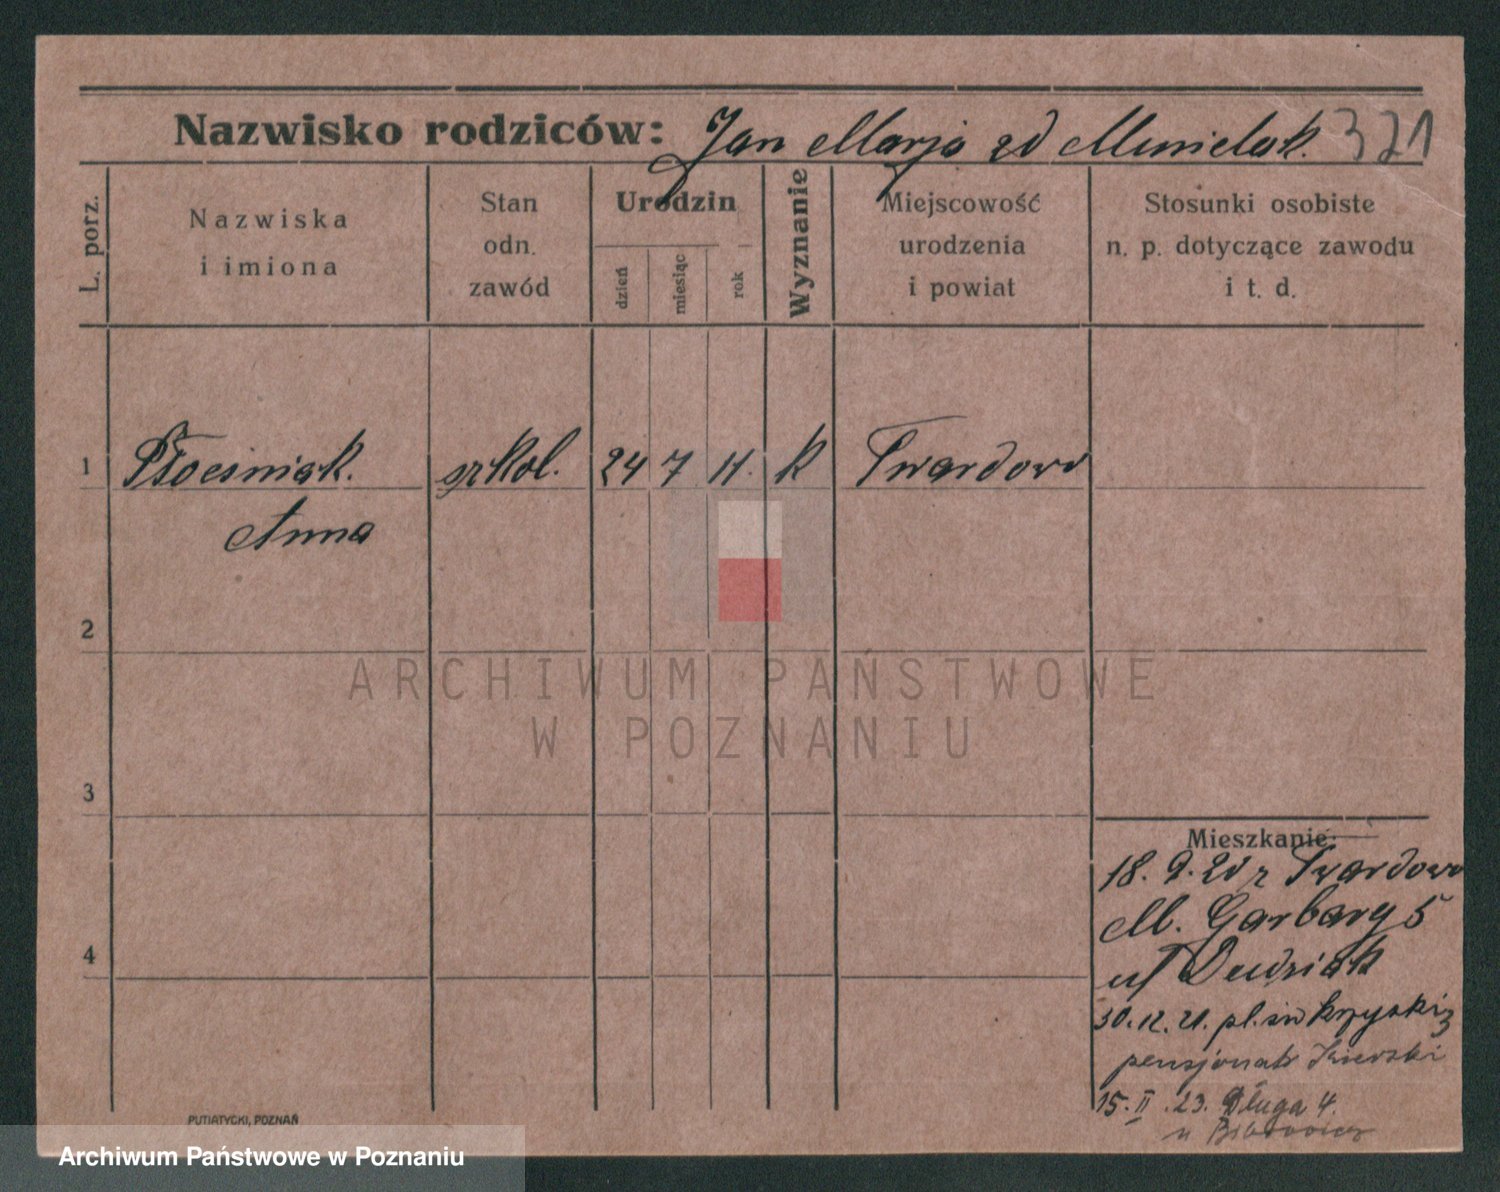 Nazwisko rodziców: Jan Marja zd 321
L. porz.
Nazwiska
i imiona
Stan
odn.
zawód
Urodzin
dzień
miesiąc
rok
Wyznanie
Miejscowość
urodzenia
i powiat
Stosunki osobiste
n. p. dotyczące zawodu
i t. d.
1 szkol. 24 7 11. k Twardowo
Anna
2
ARCHIWUM PAŃSTWOWE
W POZNANIU
3
Mieszkanie:
18. 9. 20 z Twardowo
M. Garbary 5
Dudziak
4
30.12.21. pl. św krzyski 3
pensjonat
15. II. 23. Długa 4.
u
PUTIATYCKI, POZNAŃ
Archiwum Państwowe w Poznaniu